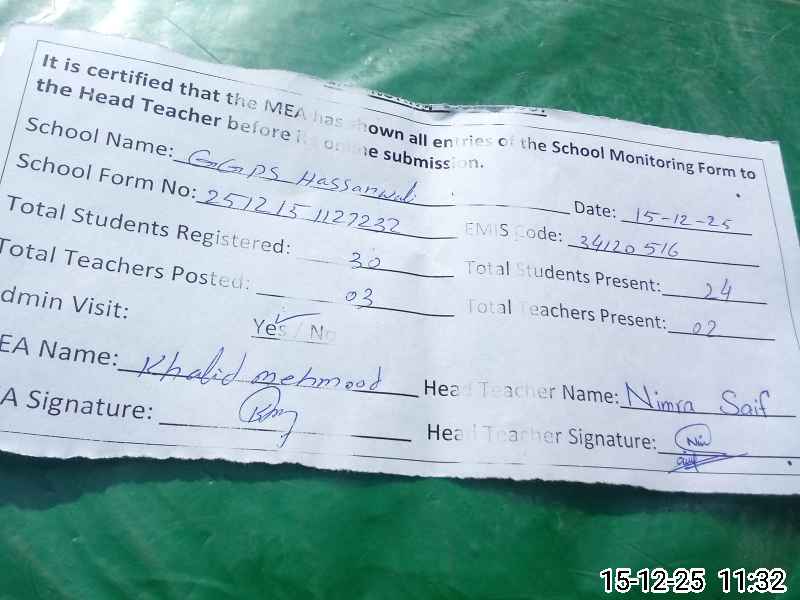 It is certified that the MEA has shown all entries of the School Monitoring Form to
the Head Teacher before its online submission.
School Name: GGPS Hassanwali Date: 15-12-25
School Form No: 2512151127232 EMIS Code: 34120516
Total Students Registered: 30 Total Students Present: 24
Total Teachers Posted: 03 Total Teachers Present: 02
dmin Visit: Yes / No
EA Name: Khalid mehmood Head Teacher Name: Nimra Saif
A Signature: Head Teacher Signature:
15-12-25 11:32